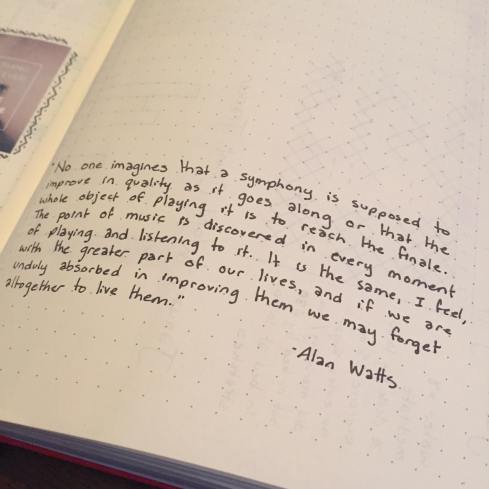 "No one imagines that a symphony is supposed to
improve in quality as it goes along or that the
whole object of playing it is to reach the finale.
The point of music is discovered in every moment
of playing and listening to it. It is the same, I feel,
with the greater part of our lives, and if we are
unduly absorbed in improving them we may forget
altogether to live them."
-Alan Watts